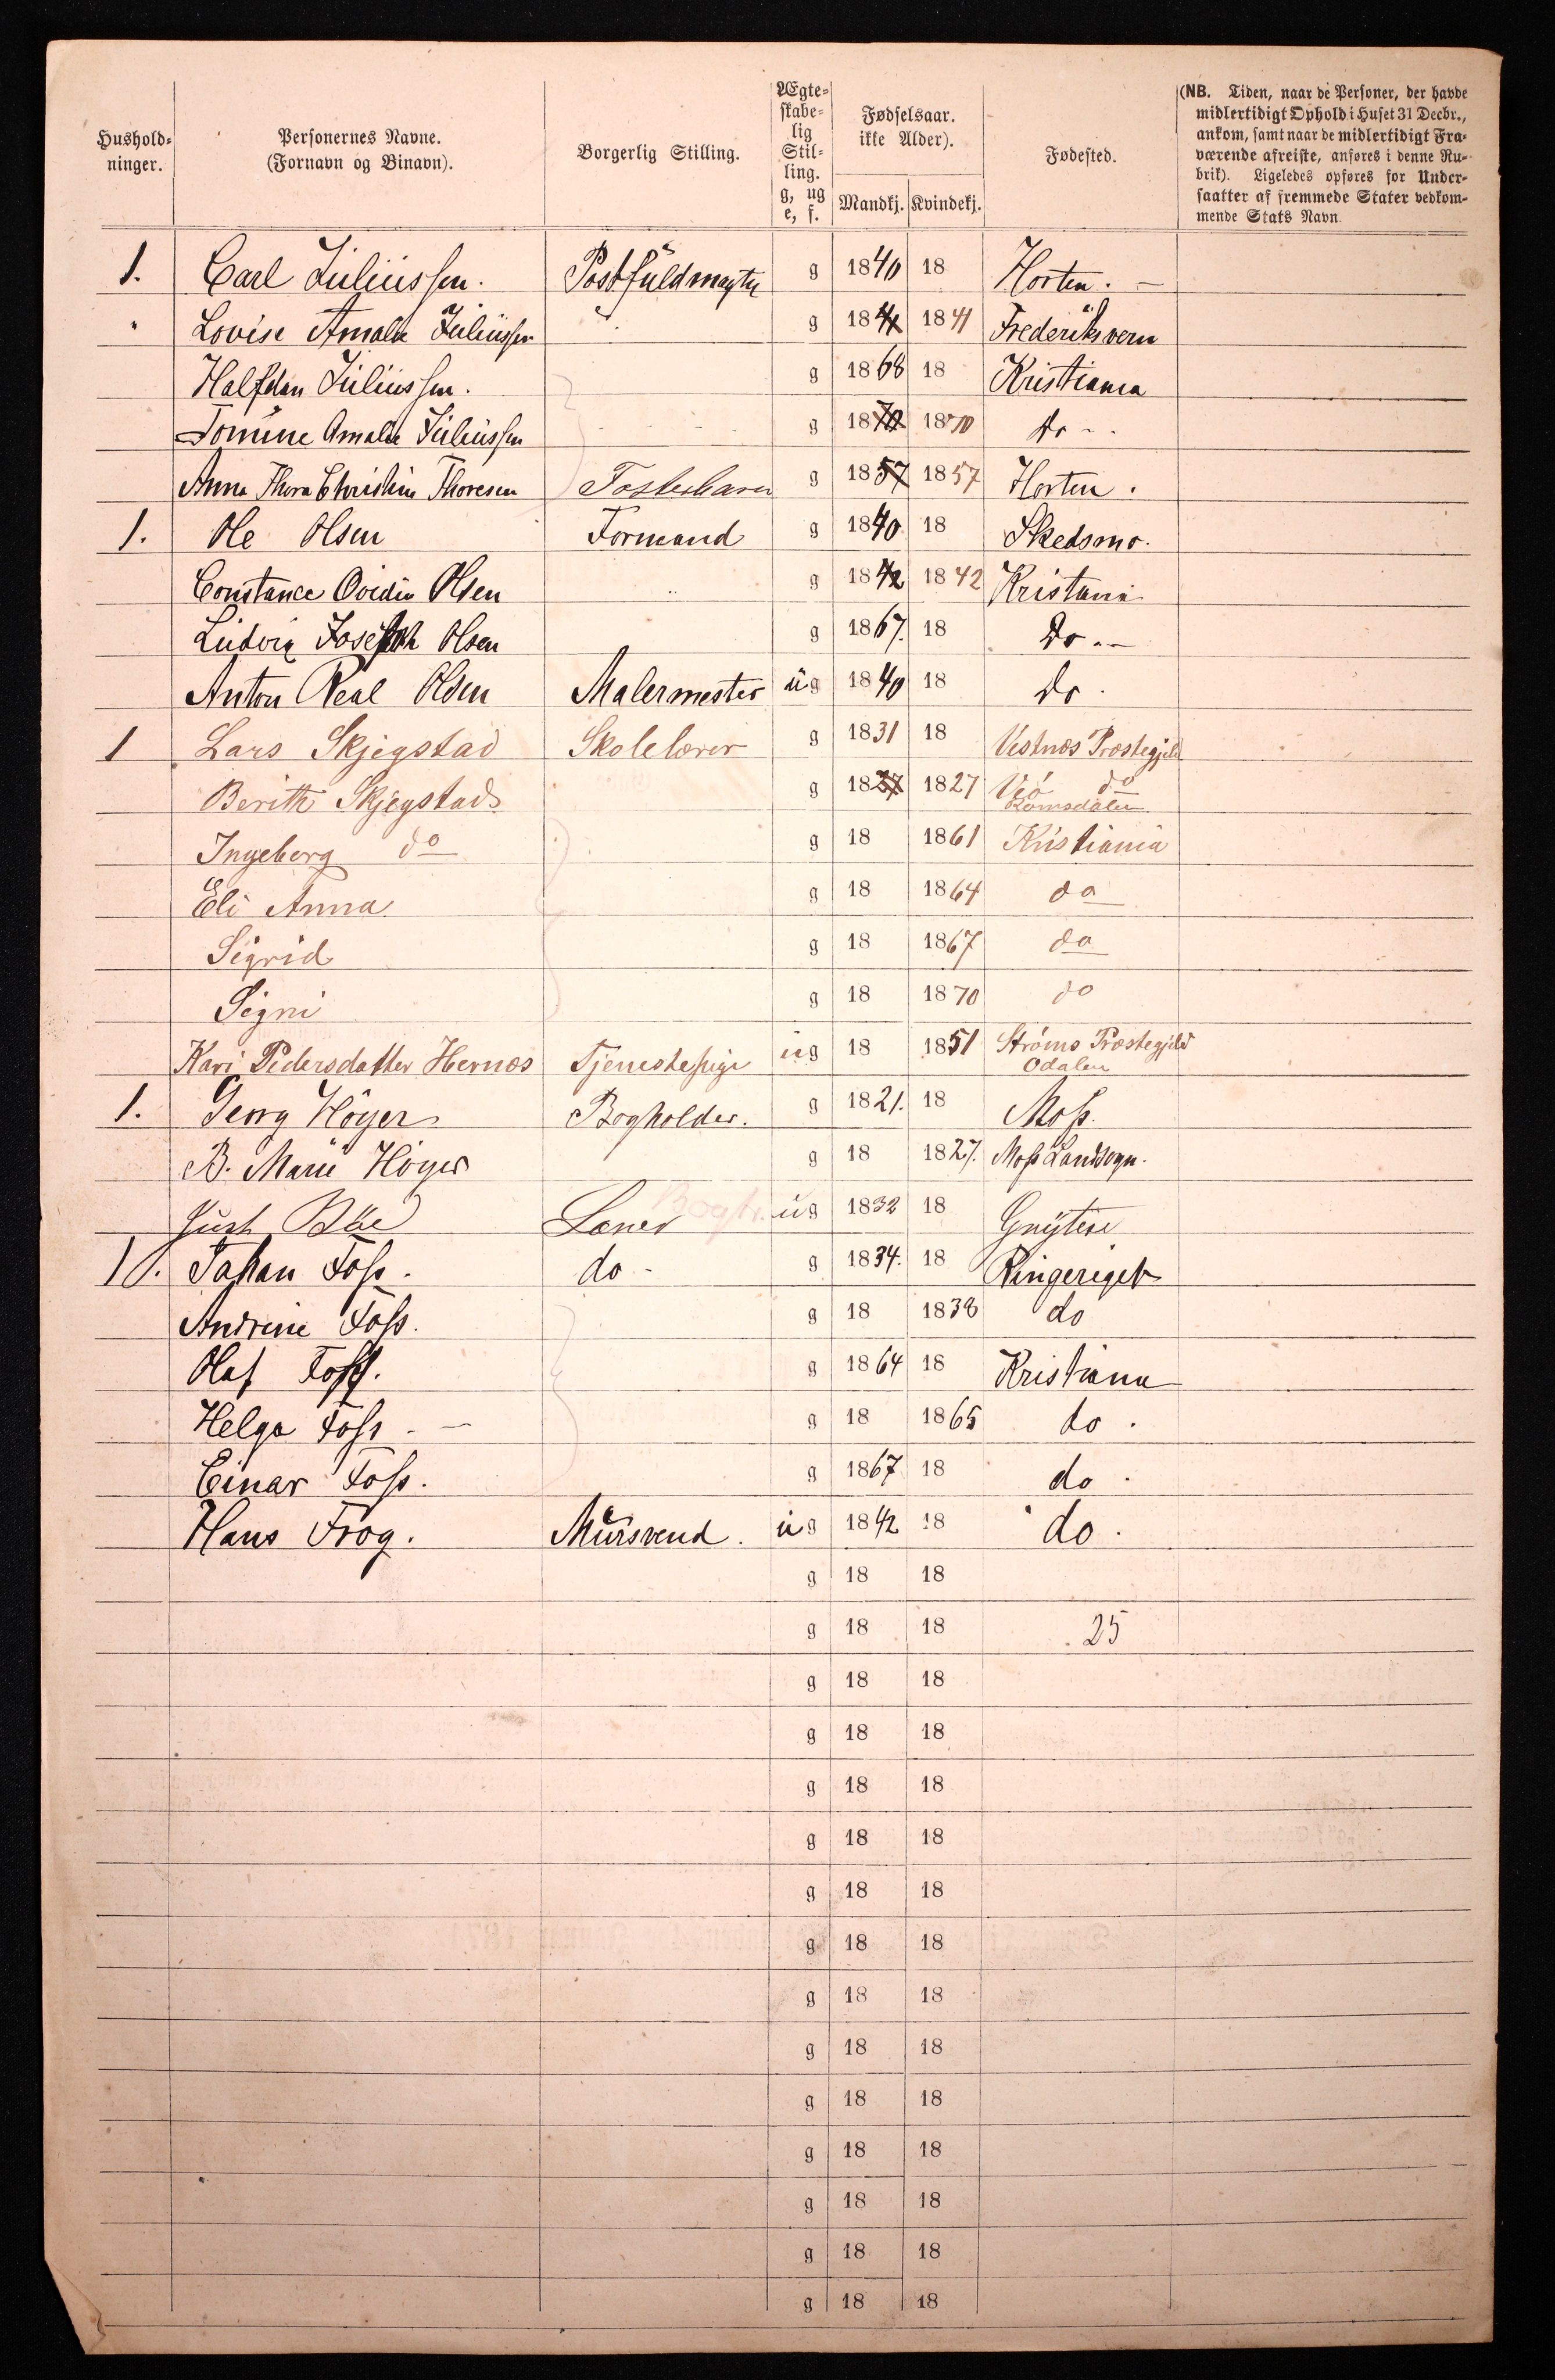 Hushold-
ninger.
Personernes Navne.
(Fornavn og Binavn).
Borgerlig Stilling.
Ægte-
skabe-
lig
Stil-
ling.
g, ug
e, f.
Fødselsaar.
ikke Alder).
Mandkj. Kvindekj.
Fødested.
(NB. Tiden, naar de Personer, der havde
midlertidigt Ophold i Huset 31 Decbr.,
ankom, samt naar de midlertidigt Fra-
værende afreiste, anføres i denne Ru-
brik). Ligeledes opføres for Under-
saatter af fremmede Stater vedkom-
mende Stats Navn.
1. Carl Juliussen. Postfuldmægtig g 1840 18 Horten. —
" Lovise Amalie Juliussen g 1841 1841 Frederiksvern
Halfdan Juliussen. g 1868 18 Kristiania
Tomine Amalie Juliussen g 1870 1870 do - -
Anna Thora Christine Thoresen Fosterbarn g 1857 1857 Horten.
1. Ole Olsen Formand g 1840 18 Skedsmo.
Constance Ovidia Olsen g 1842 1842 Kristania
Ludvig Joseph Olsen g 1867. 18 Do --
Anton Real Olsen Malermester ug 1840 18 do.
1 Lars Skjegstad Skolelærer g 1831 18 Vestnæs Præstegjeld
Berith Skjegstad g 1827 1827 Veö do
Romsdalen
Ingeborg do g 18 1861 Kristiania
Eli Anna g 18 1864 do
Sigrid g 18 1867 do
Signi g 18 1870 do
Kari Pedersdatter Hernæs Tjenestepige ug 18 1851 Ströms Præstegjeld
Odalen
1. Georg Höyer Bogholder. g 1821. 18 Moss.
B. Marie Höyer g 18 1827. Moss Landsogn.
Just Bäe ug 1832 18
1. Johan Foss. do - g 1834. 18 Ringeriget
Andrine Foss. g 18 1838 do
Olaf Foss. g 1864 18 Kristiana
Helga Foss - — g 18 1865 do.
Einar Foss. g 1867 18 do.
Hans Frog. Mursvend. ug 1842 18 do.
g 18 18
g 18 18 25
g 18 18
g 18 18
g 18 18
g 18 18
g 18 18
g 18 18
g 18 18
g 18 18
g 18 18
g 18 18
g 18 18
g 18 18
g 18 18